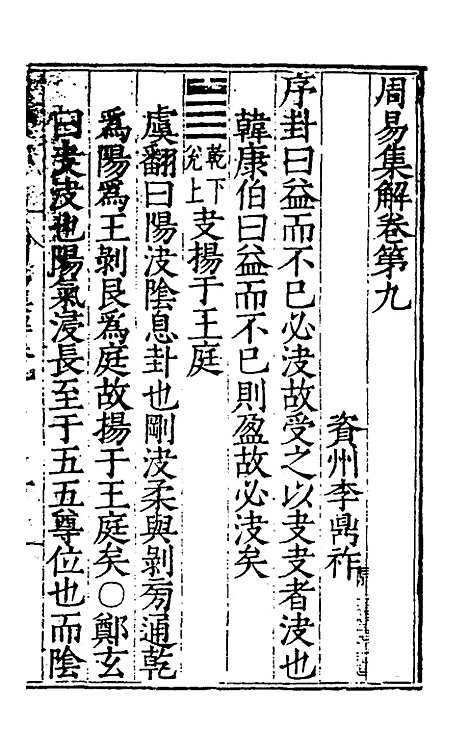 周易集解卷第九
資州李鼎祚
序卦曰益而不已必決故受之以夬夬者決也
韓康伯曰益而不已則盈故必決矣
乾下
兌上
夬揚于王庭
虞翻曰陽決陰息卦也剛決柔與剝旁通乾
爲陽爲王剝艮爲庭故揚于王庭矣○鄭玄
曰夬決也陽氣浸長至于五五尊位也而陰